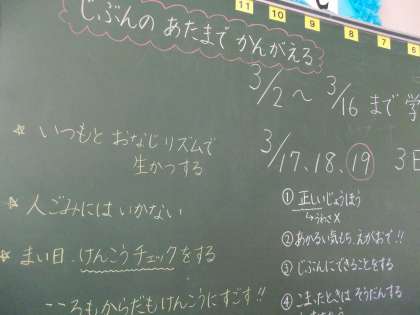 11 10 9 8 7 6
じぶんの あたまで かんがえる
3/2 ～ 3/16 まで 学
3/17、18、19 3日
☆ いつもと おなじ リズムで
生かつする
☆ 人ごみには いかない
☆ まい日、けんこうチェックをする
こころもからだもけんこうにすごす!!
① 正しいじょうほう
うわさ×
② あかるい気もち、えがおで!!
③ じぶんにできることをする
④ こまったときは そうだんする